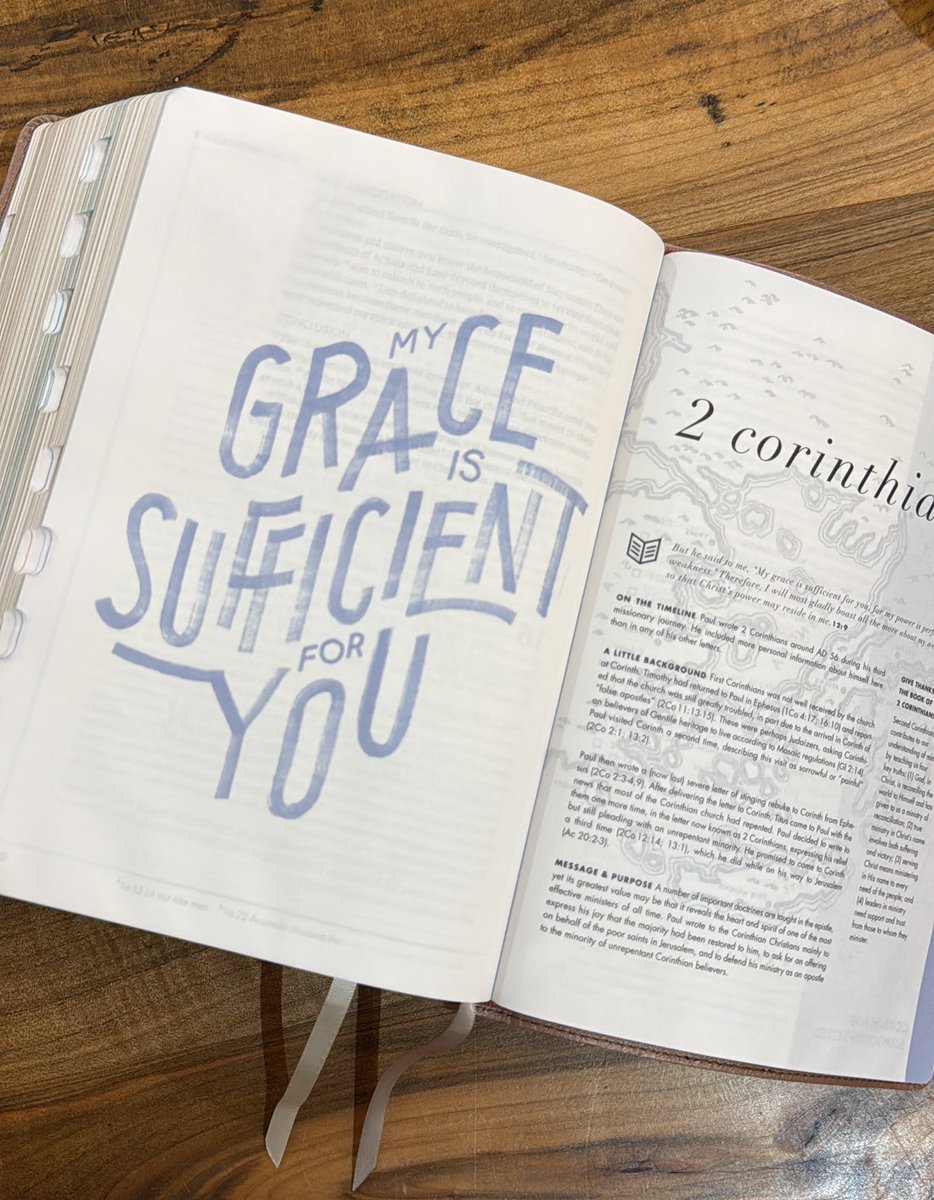 MY
GRACE
IS
SUFFICIENT
FOR
YOU
2 corinthia
But he said to me, "My grace is sufficient for you, for my power is perf
weakness." Therefore, I will most gladly boast all the more about my
so that Christ's power may reside in me. 12:9
ON THE TIMELINE Paul wrote 2 Corinthians around AD 56 during his third
missionary journey. He included more personal information about himself here
than in any of his other letters.
A LITTLE BACKGROUND First Corinthians was not well received by the church
at Corinth. Timothy had returned to Paul in Ephesus (1Co 4:17; 16:10) and report-
ed that the church was still greatly troubled, in part due to the arrival in Corinth of
"false apostles" (2Co 11:13-15). These were perhaps Judaizers, asking Corinthi-
an believers of Gentile heritage to live according to Mosaic regulations (Gl 2:14).
Paul visited Corinth a second time, describing this visit as sorrowful or "painful"
(2Co 2:1; 13:2).
Paul then wrote a (now lost) severe letter of stinging rebuke to Corinth from Ephe-
sus (2Co 2:3-4,9). After delivering the letter to Corinth, Titus came to Paul with the
news that most of the Corinthian church had repented. Paul decided to write to
them one more time, in the letter now known as 2 Corinthians, expressing his relief
but still pleading with an unrepentant minority. He promised to come to Corinth
a third time (2Co 12:14; 13:1), which he did while on his way to Jerusalem
(Ac 20:2-3).
MESSAGE & PURPOSE A number of important doctrines are taught in the epistle,
yet its greatest value may be that it reveals the heart and spirit of one of the most
effective ministers of all time. Paul wrote to the Corinthian Christians mainly to
express his joy that the majority had been restored to him, to ask for an offering
on behalf of the poor saints in Jerusalem, and to defend his ministry as an apostle
to the minority of unrepentant Corinthian believers.
GIVE THANKS
THE BOOK OF
2 CORINTHIANS
Second Corinthians
contributes to our
understanding of
ministry by teaching us four
key truths: (1) God, in
Christ, is reconciling the
world to Himself and has
given to us a ministry of
reconciliation; (2) true
ministry in Christ's name
involves both suffering
and victory; (3) serving
Christ means ministering
in His name to every
need of the people; and
(4) leaders in ministry
need support and trust
from those to whom they
minister.